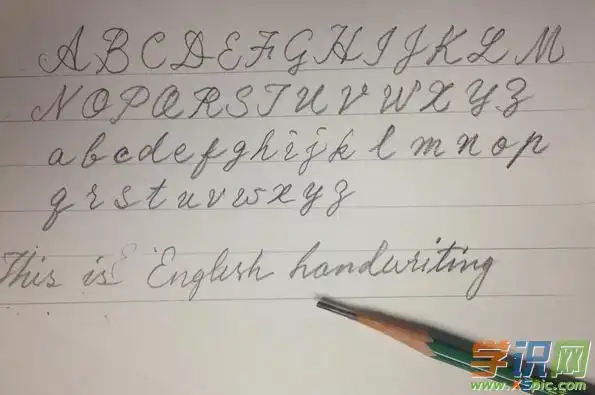 A B C D E F G H I J K L M
N O P Q R S T U V W X Y Z
a b c d e f g h i j k l m n o p
q r s t u v w x y z
This is English handwriting
学识网
www.XSpic.com